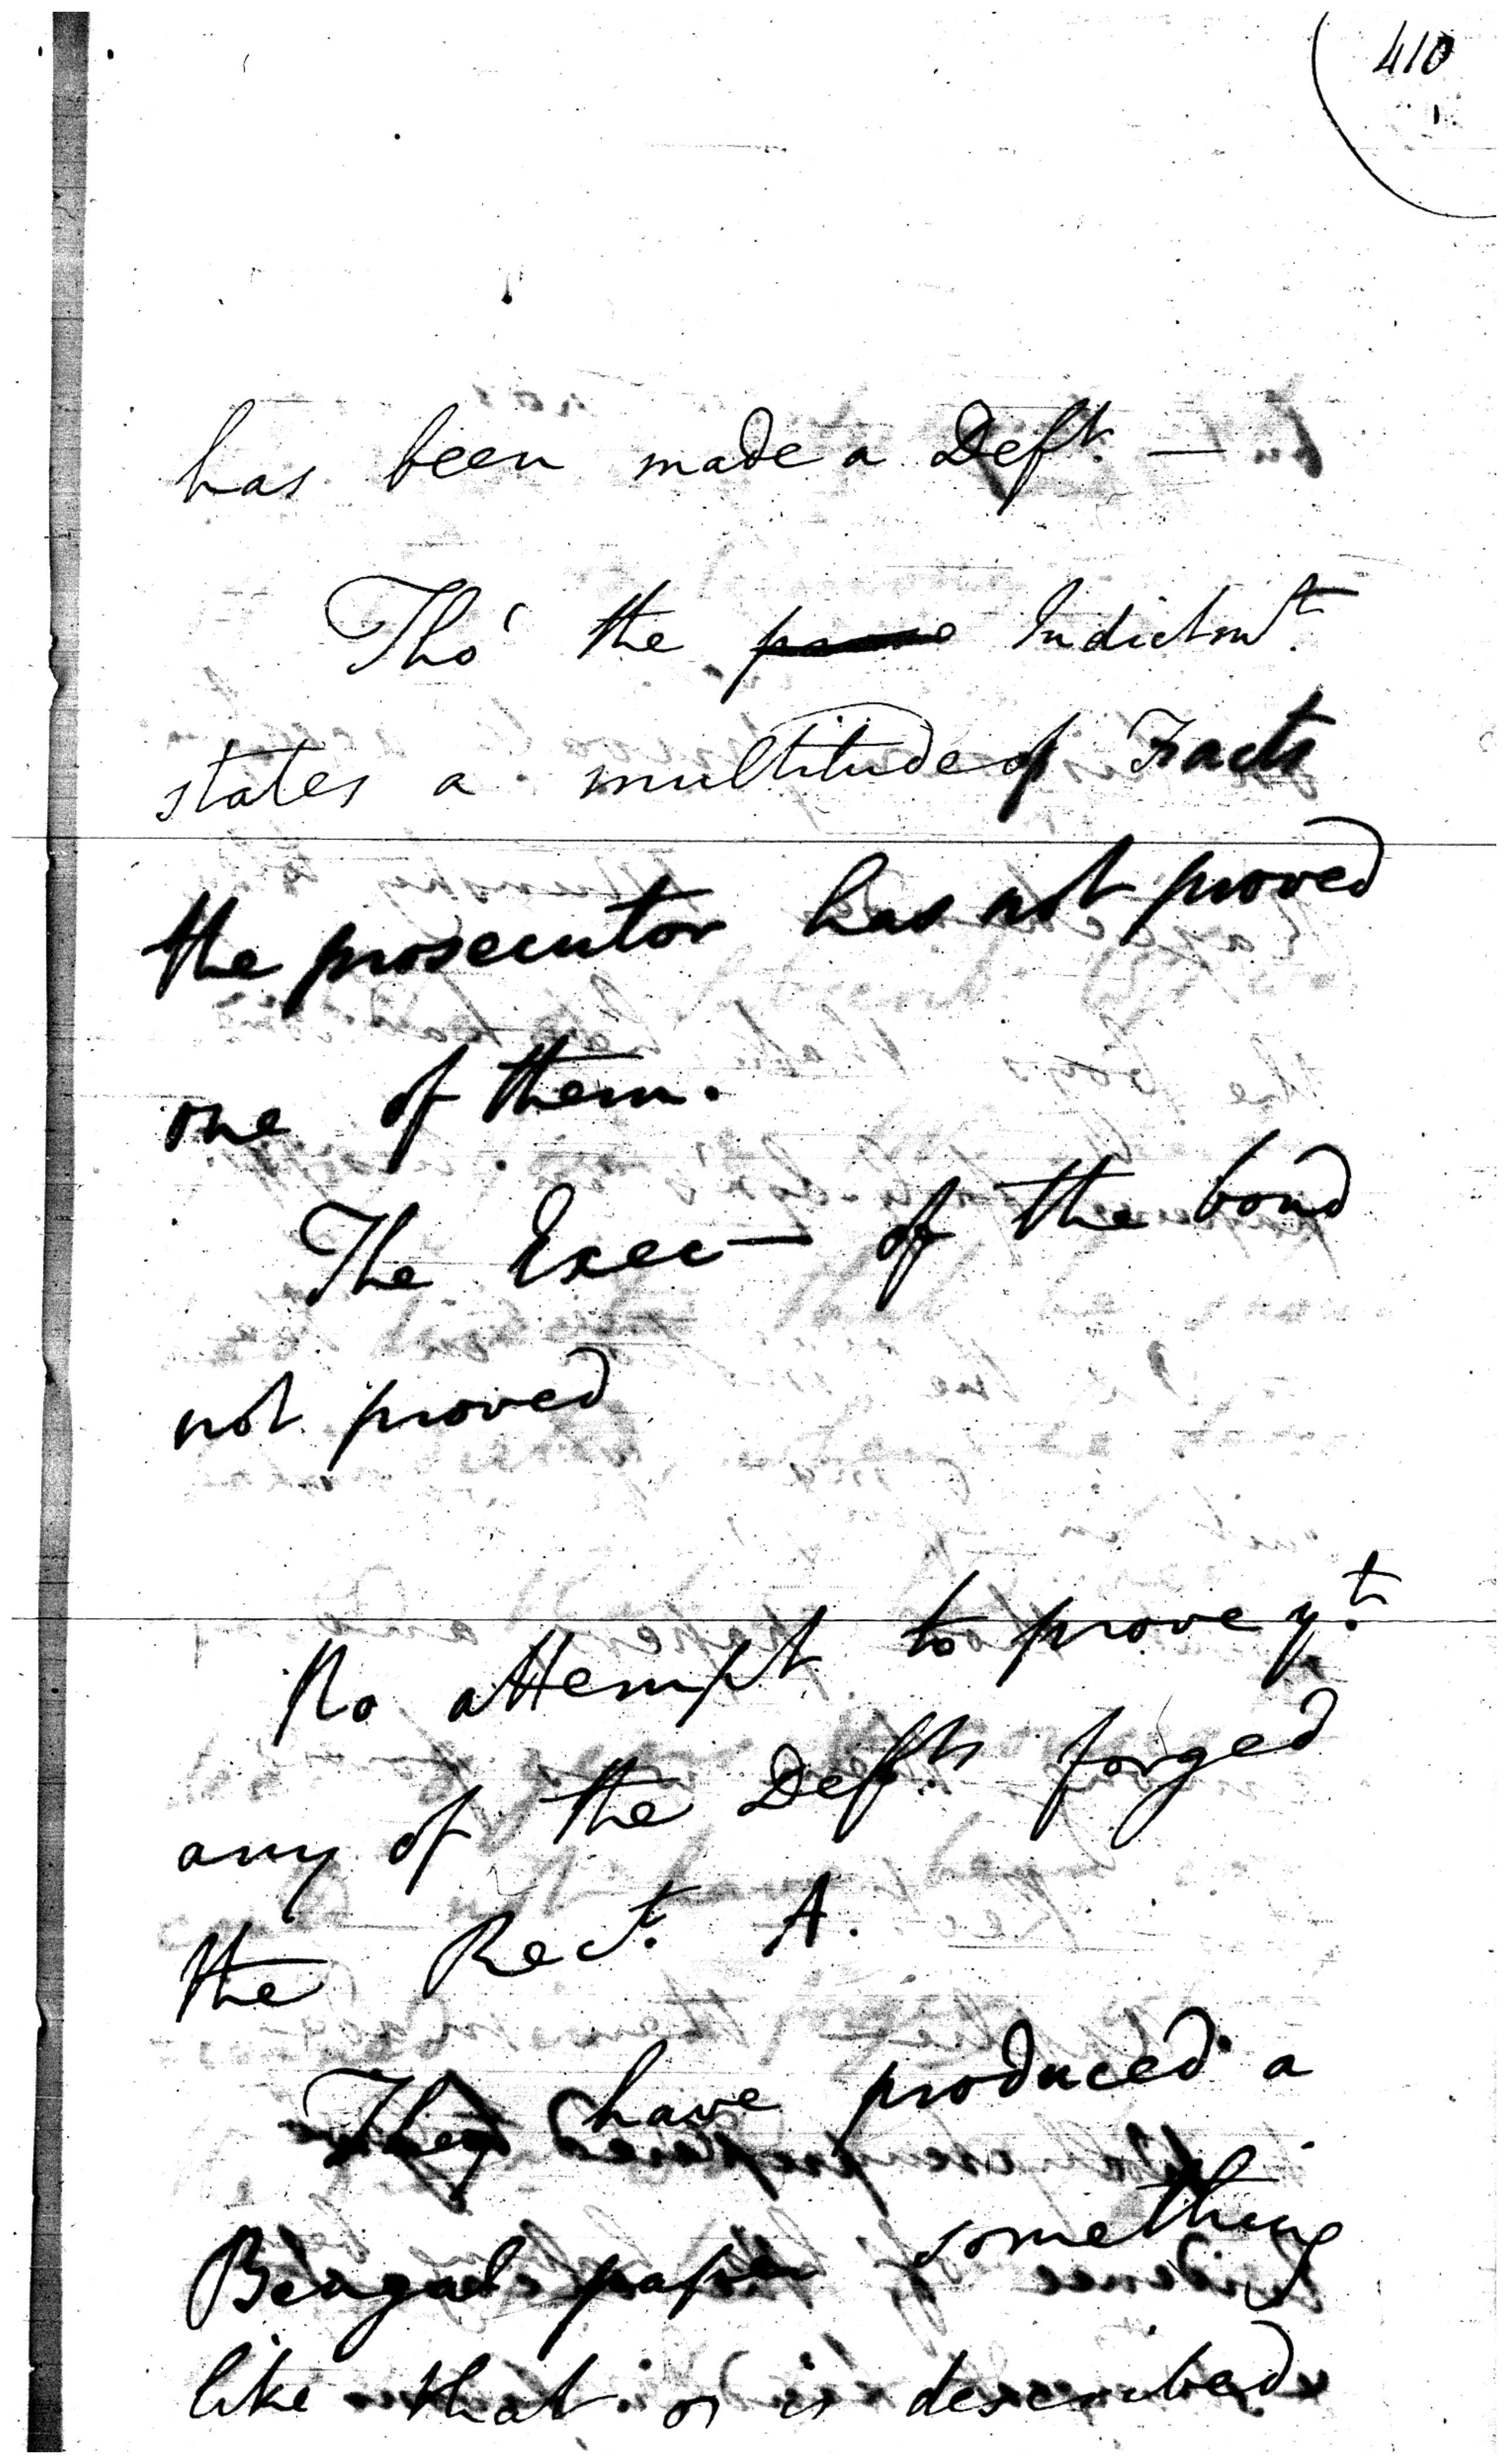 410
has been made a Deft. —
Tho' the Indictmt.
states a multitude of Facts
the prosecutor has not proved
one of them.
The Exec— of the bond
not proved
No attempt to prove yt.
any of the Defts. forged
the Rect. A.
They have produced a
Bengal paper something
like that as is described